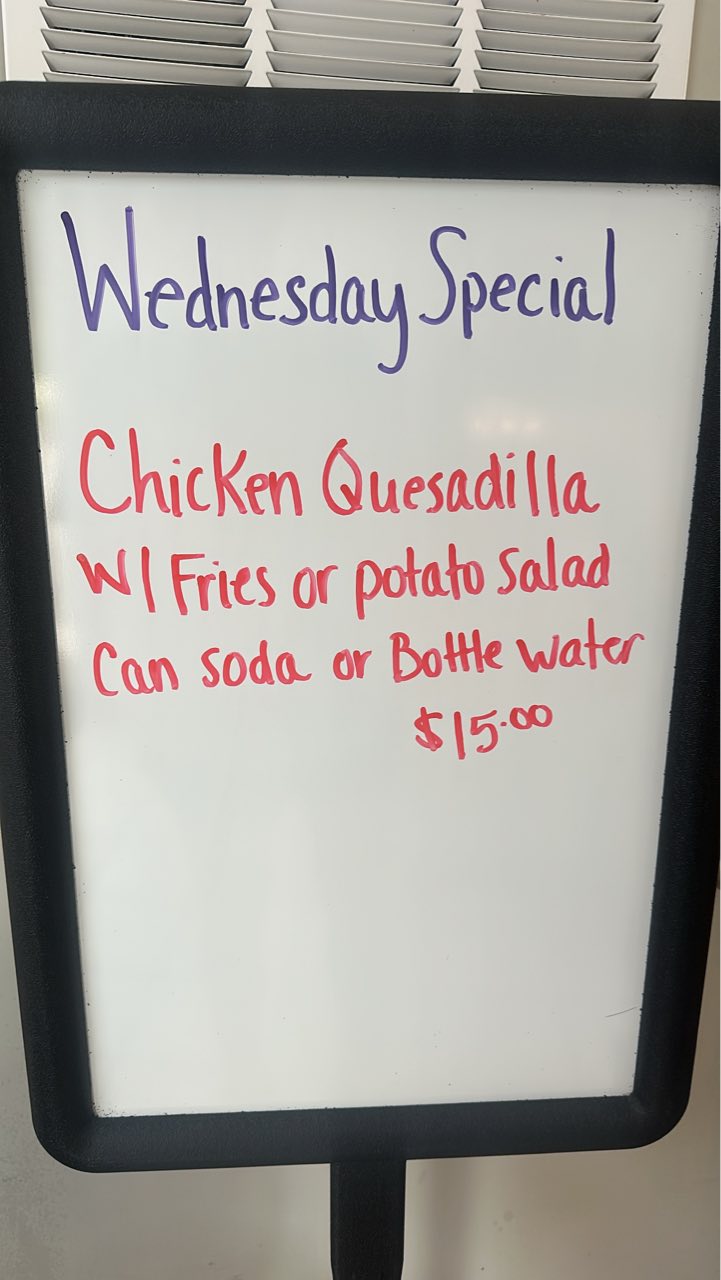 Wednesday Special
Chicken Quesadilla
W/ Fries or potato Salad
Can soda or Bottle water
$15.00